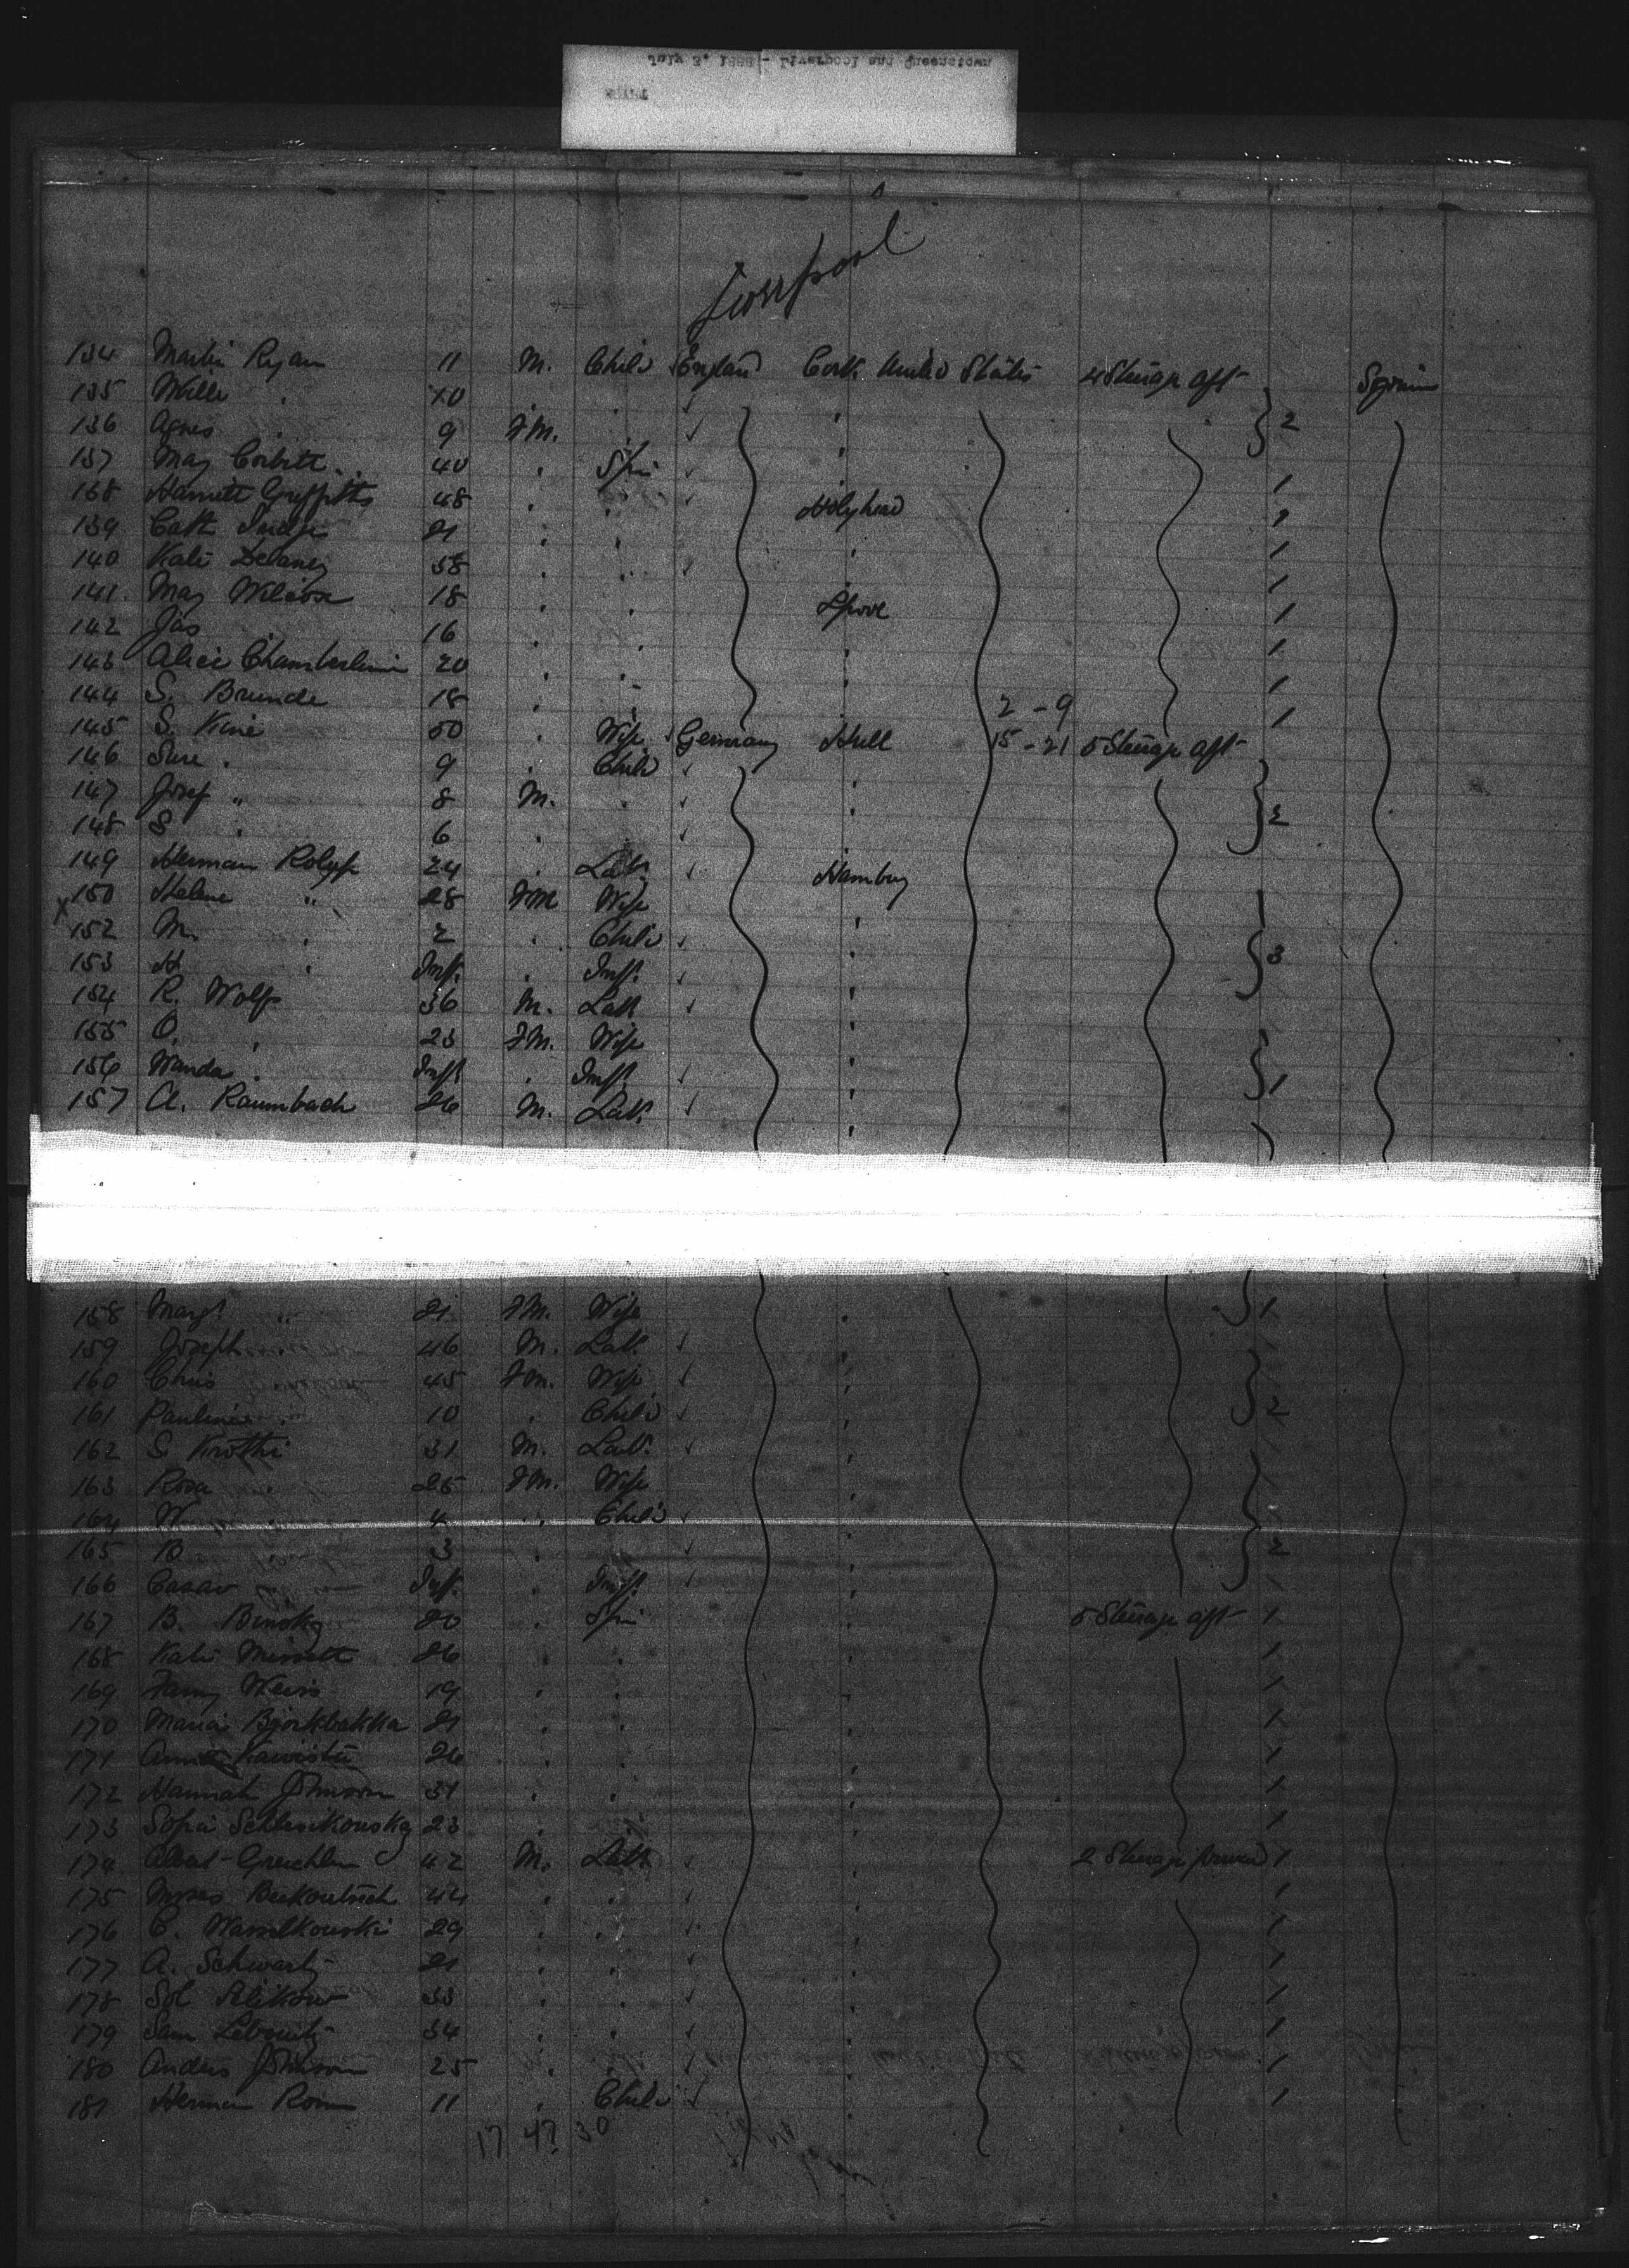 July 3, 1888 - Liverpool and Queenstown
Liverpool
134 Martin Ryan 11 M. Child England Cork United States 4 Steerage aft
135 Willie " 10 " "
136 Agnes " 9 FM. " 2
137 May Corbett 40 " Spin 1
168 Harriett Griffiths 48 " " Holyhead
139 Cath Judge 21 " " " 1
140 Kate Delaney 38 " " 1
141 May Wilcox 18 " " Lpool 1
142 Jas 16 " " " 1
143 Alice Chamberlain 20 " " " 1
144 S. Brunde 18 " " " 2 - 9 1
145 S. Kine 50 " Wife Germany Hull 15 - 21 5 Steerage aft
146 Sure " 9 " Child "
147 Josef " 8 M. " " 2
148 S " 6 " " "
149 Herman Rolyf 24 " Lab. Hamburg
X 150 Helene " 28 FM Wife "
152 M. " 2 " Child " 3
153 H " Inft. " Inft. "
154 R. Wolf 36 M. Lab "
155 O. " 23 FM. Wife "
156 Wanda " Inft " Inft. " 1
157 A. Raumbach 26 M. Lab. "
158 Margt " 21 FM. Wife " 1
159 Joseph " 46 M. Lab. "
160 Chris 45 FM. Wife "
161 Pauline " 10 " Child " 2
162 S. Krothi 31 M. Lab. "
163 Rosa " 25 FM. Wife "
164 W 4 " Child "
165 B 3 " " " 2
166 Inft. " Inft. "
167 B. Binsky 20 " Spin " 5 Steerage aft 1
168 Kate 26 " " " 1
169 Fanny Weiss 19 " " " 1
170 Maria Bjorkbakka 21 " " " 1
171 26 " " " 1
172 Hannah Johnson 31 " " " 1
173 Sofia Schlesikowsky 23 " " 1
174 Albert Greichen 42 M. Lab. " 2 Steerage forward 1
175 Moses 44 " " " 1
176 C. Wasselkowski 29 " " " 1
177 A. Schwartz 21 " " " 1
178 Sol Selikow 33 " " " 1
179 Sam Lebowitz 34 " " " 1
180 Anders Johnson 25 " " " 1
181 Herman Rom 11 " Child " 1
17 47 30